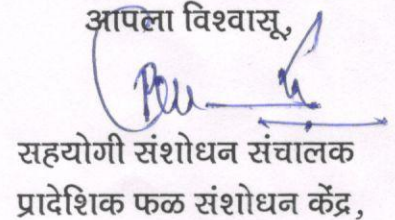 आपला विश्वासू,
सहयोगी संशोधन संचालक
प्रादेशिक फळ संशोधन केंद्र,